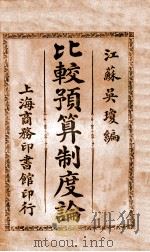 江蘇吳瓊編
比較預算制度論
上海商務印書館印行
www.mtoou.info